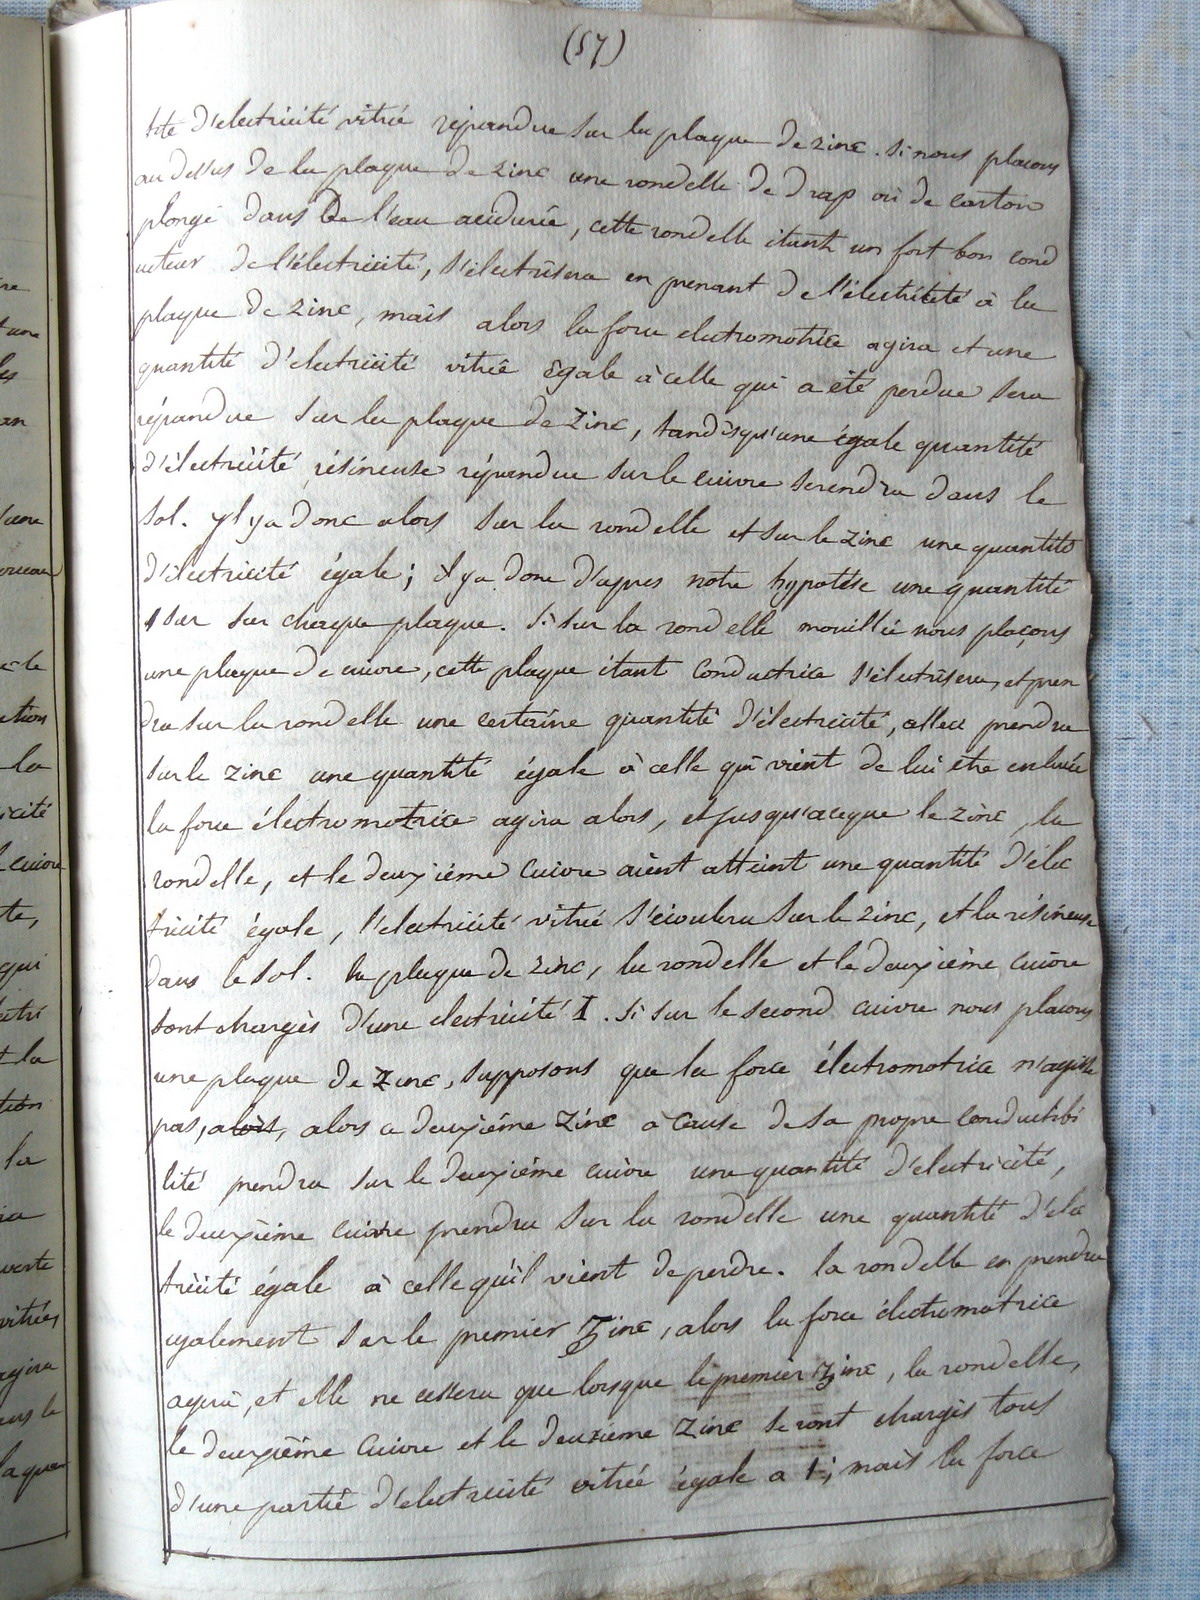 (57)
tité d'electricité vitrée répandue sur la plaque de zinc. si nous placons
au dessus de la plaque de zinc une rondelle de drap où de carton
plongé dans de l'eau acidurée, cette rondelle étant un fort bon cond
ucteur de l'électricité, s'électrisera en prenant de l'électricité à la
plaque de zinc, mais alors la force electromotrice agira et une
quantité d'electricité vitrée égale à celle qui a été perdue sera
répandue sur la plaque de zinc, tandisqu'une égale quantité
d'électricité résineuse répandue sur le cuivre serendra dans le
sol. yl ya donc alors sur la rondelle et sur le zinc une quantité
d'électricité égale; il ya donc d'apres notre hypotése une quantité
1 sur sur chaque plaque. Si sur la rondelle mouillée nous plaçons
une plaque de cuivre, cette plaque étant conductrice s'électrisera, et pren
dra sur la rondelle une certaine quantité d'électricité, celleci prendra
sur le zinc une quantité égale à celle qui vient de lui être enlevée
la force électromotrice agira alors, et jusqu'aceque le zinc, la
rondelle, et le deuxième cuivre aient atteint une quantité d'élec
tricité égale, l'electricité vitrée s'écoulera sur le zinc, et la résineuse
dans le sol. la plaque de zinc, la rondelle et le deuxième cuivre
sont chargés d'une electricité 1. Si sur le second cuivre nous placons
une plaque de zinc, supposons que la force électromotrice n'agisse
pas, alors, alors ce deuxième zinc à cause de sa propre conductibi
lité prendra sur le deuxième cuivre une quantité d'electricité,
le deuxième cuivre prendra sur la rondelle une quantité d'elec
tricité égale à celle qu'il vient de perdre. la rondelle en prendra
egalement sur le premier zinc, alors la force électromotrice
agira, et elle ne cessera que lorsque le premier zinc, la rondelle,
le deuxième cuivre et le deuxieme zinc seront chargés tous
d'une partie d'electricité vitrée égale a 1; mais la force